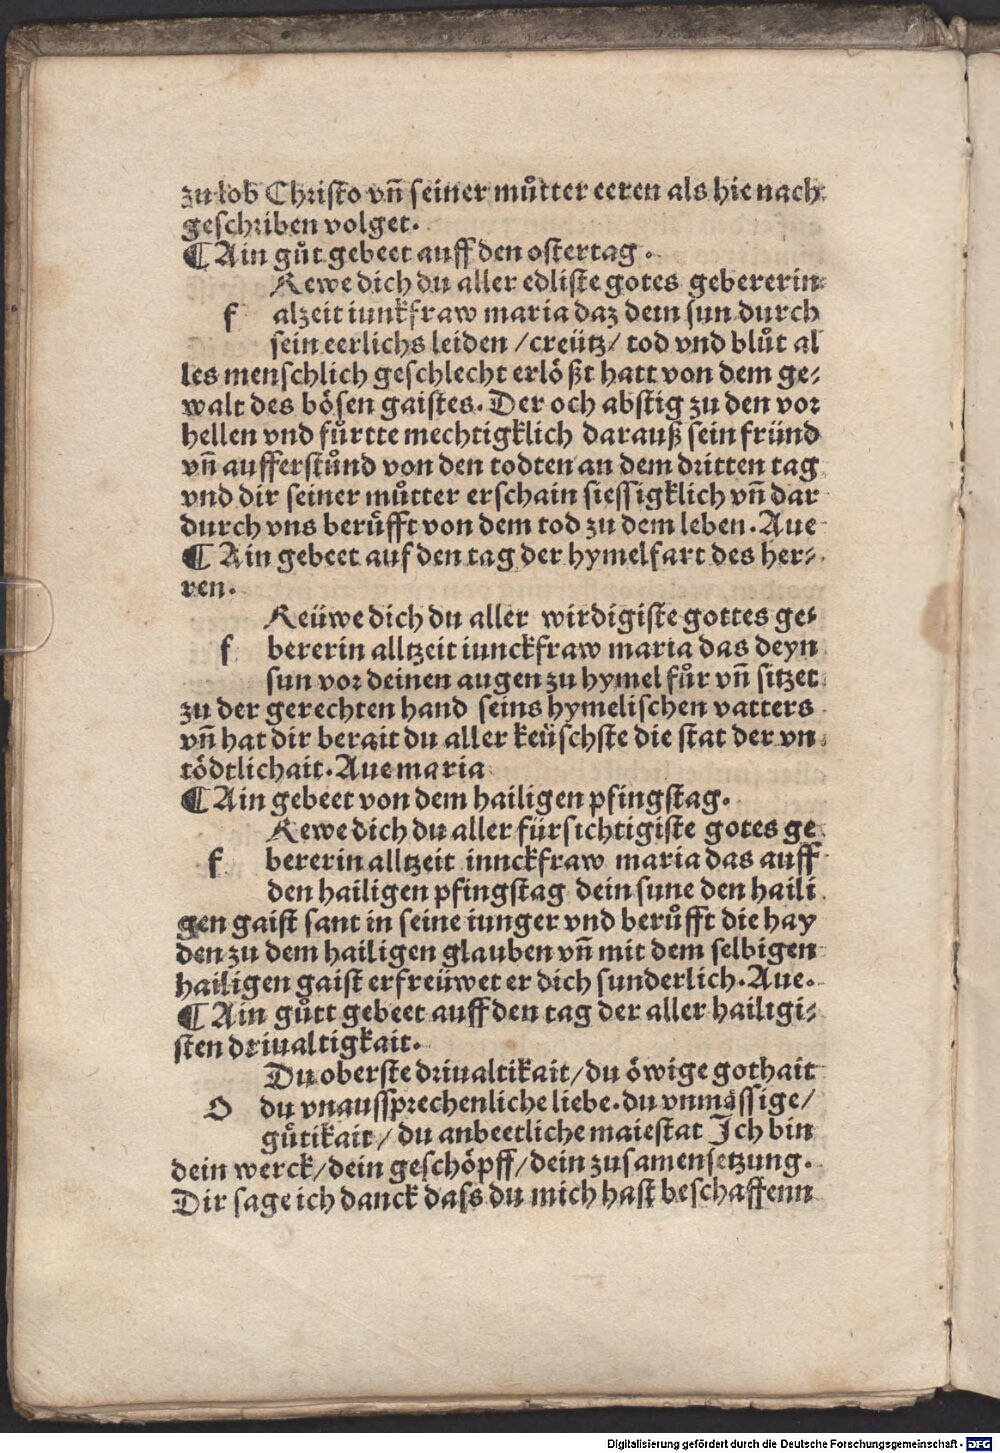 zu lob Christo vñ seiner můtter eeren als hie nach
geschriben volget.
¶ Ain gůt gebeet auff den ostertag.
Rewe dich du aller edliste gotes gebererin
f alzeit iunkfraw maria daz dein sun durch
sein eerlichs leiden / creütz / tod vnd blůt al
les menschlich geschlecht erlößt hatt von dem ge⸗
walt des bösen gaistes. Der och abstig zu den vor
hellen vnd fůrtte mechtigklich darauß sein fründ
vñ aufferstůnd von den todten an dem dritten tag
vnd dir seiner můtter erschain siessigklich vñ dar
durch vns berůfft von dem tod zu dem leben. Aue
¶ Ain gebeet auf den tag der hymelfart des her⸗
ren.
Reüwe dich du aller wirdigiste gottes ge⸗
f bererin alltzeit iunckfraw maria das deyn
sun vor deinen augen zu hymel fůr vñ sitzet
zu der gerechten hand seins hymelischen vatters
vñ hat dir berait du aller keüschste die stat der vn
tödtlichait. Aue maria
¶ Ain gebeet von dem hailigen pfingstag.
Rewe dich du aller fürsichtigiste gotes ge
f bererin alltzeit innckfraw maria das auff
den hailigen pfingstag dein sune den haili
gen gaist sant in seine iunger vnd berůfft die hay
den zu dem hailigen glauben vñ mit dem selbigen
hailigen gaist erfreüwet er dich sunderlich. Aue.
¶ Ain gůtt gebeet auff den tag der aller hailigi⸗
sten driualtigkait.
Du oberste driualtikait / du öwige gothait
O du vnaussprechenliche liebe. du vnmässige /
gůtikait / du anbeetliche maiestat Ich bin
dein werck / dein geschöpff / dein zusamensetzung.
Dir sage ich danck dass du mich hast beschaffenn
Digitalisierung gefördert durch die Deutsche Forschungsgemeinschaft - DFG